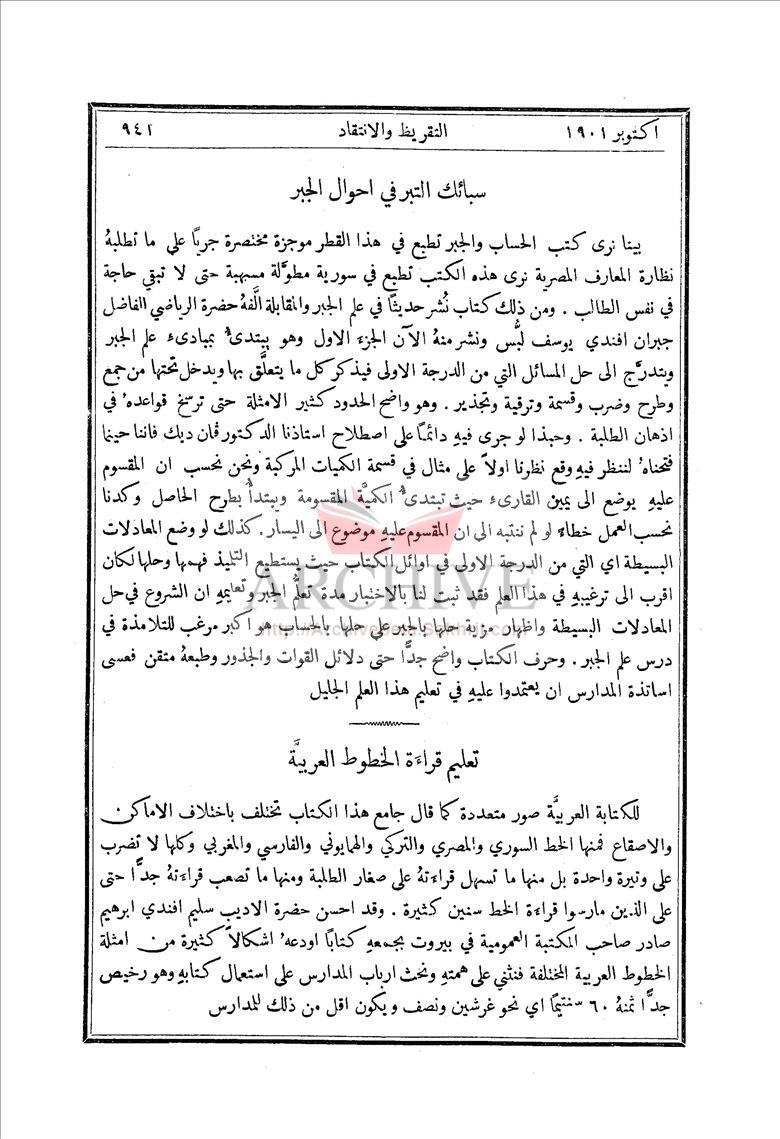 اكتوبر ١٩٠١ التقريظ والانتقاد ٩٤١
سبائك التبر في احوال الجبر
بينا نرى كتب الحساب والجبر تطبع في هذا القطر موجزة مختصرة جريًا على ما تطلبهُ
نظارة المعارف المصرية نرى هذه الكتب تطبع في سورية مطوَّلة مسهبة حتى لا تبقي حاجة
في نفس الطالب . ومن ذلك كتاب نُشر حديثًا في علم الجبر والمقابلة الَّفهُ حضرة الرياضي الفاضل
جبران افندي يوسف لبُّس ونشر منهُ الآن الجزء الاول وهو يبتدئُ بمبادىء علم الجبر
ويتدرَّج الى حل المسائل التي من الدرجة الاولى فيذكر كل ما يتعلَّق بها ويدخل تحتها من جمع
وطرح وضرب وقسمة وترقية وتجذير . وهو واضح الحدود كثير الامثلة حتى ترسخ قواعدهُ في
اذهان الطلبة . وحبذا لو جرى فيهِ دائمًا على اصطلاح استاذنا الدكتور ڤان ديك فاننا حينما
فتحناهُ لننظر فيهِ وقع نظرنا اولاً على مثال في قسمة الكميات المركبة ونحن نحسب ان المقسوم
عليهِ يوضع الى يمين القارىء حيث تبتدئُ الكميَّة المقسومة ويبتدأُ بطرح الحاصل وكدنا
نحسب العمل خطاءً لو لم ننتبه الى ان المقسوم عليهِ موضوع الى اليسار . كذلك لو وضع المعادلات
البسيطة اي التي من الدرجة الاولى في اوائل الكتاب حيث يستطيع التلميذ فهمها وحلها لكان
اقرب الى ترغيبهِ في هذا العلم فقد ثبت لنا بالاختبار مدة تعلُّم الجبر وتعليمهِ ان الشروع في حل
المعادلات البسيطة واظهار مزية حلها بالجبر على حلها بالحساب هو اكبر مرغب للتلامذة في
درس علم الجبر . وحرف الكتاب واضح جدًّا حتى دلائل القوات والجذور وطبعهُ متقن فعسى
اساتذة المدارس ان يعتمدوا عليهِ في تعليم هذا العلم الجليل
ARCHIVE
تعليم قراءة الخطوط العربيَّة
للكتابة العربيَّة صور متعددة كما قال جامع هذا الكتاب تختلف باختلاف الاماكن
والاصقاع فمنها الخط السوري والمصري والتركي والهمايوني والفارسي والمغربي وكلها لا تضرب
على وتيرة واحدة بل منها ما تسهل قراءتهُ على صغار الطلبة ومنها ما تصعب قراءتهُ جدًّا حتى
على الذين مارسوا قراءة الخط سنين كثيرة . وقد احسن حضرة الاديب سليم افندي ابرهيم
صادر صاحب المكتبة العمومية في بيروت بجمعهِ كتابًا اودعهُ اشكالاً كثيرة من امثلة
الخطوط العربية المختلفة فنثني على همتهِ ونحث ارباب المدارس على استعمال كتابهِ وهو رخيص
جدًّا ثمنهُ ٦٠ سنتيمًا اي نحو غرشين ونصف ويكون اقل من ذلك للمدارس